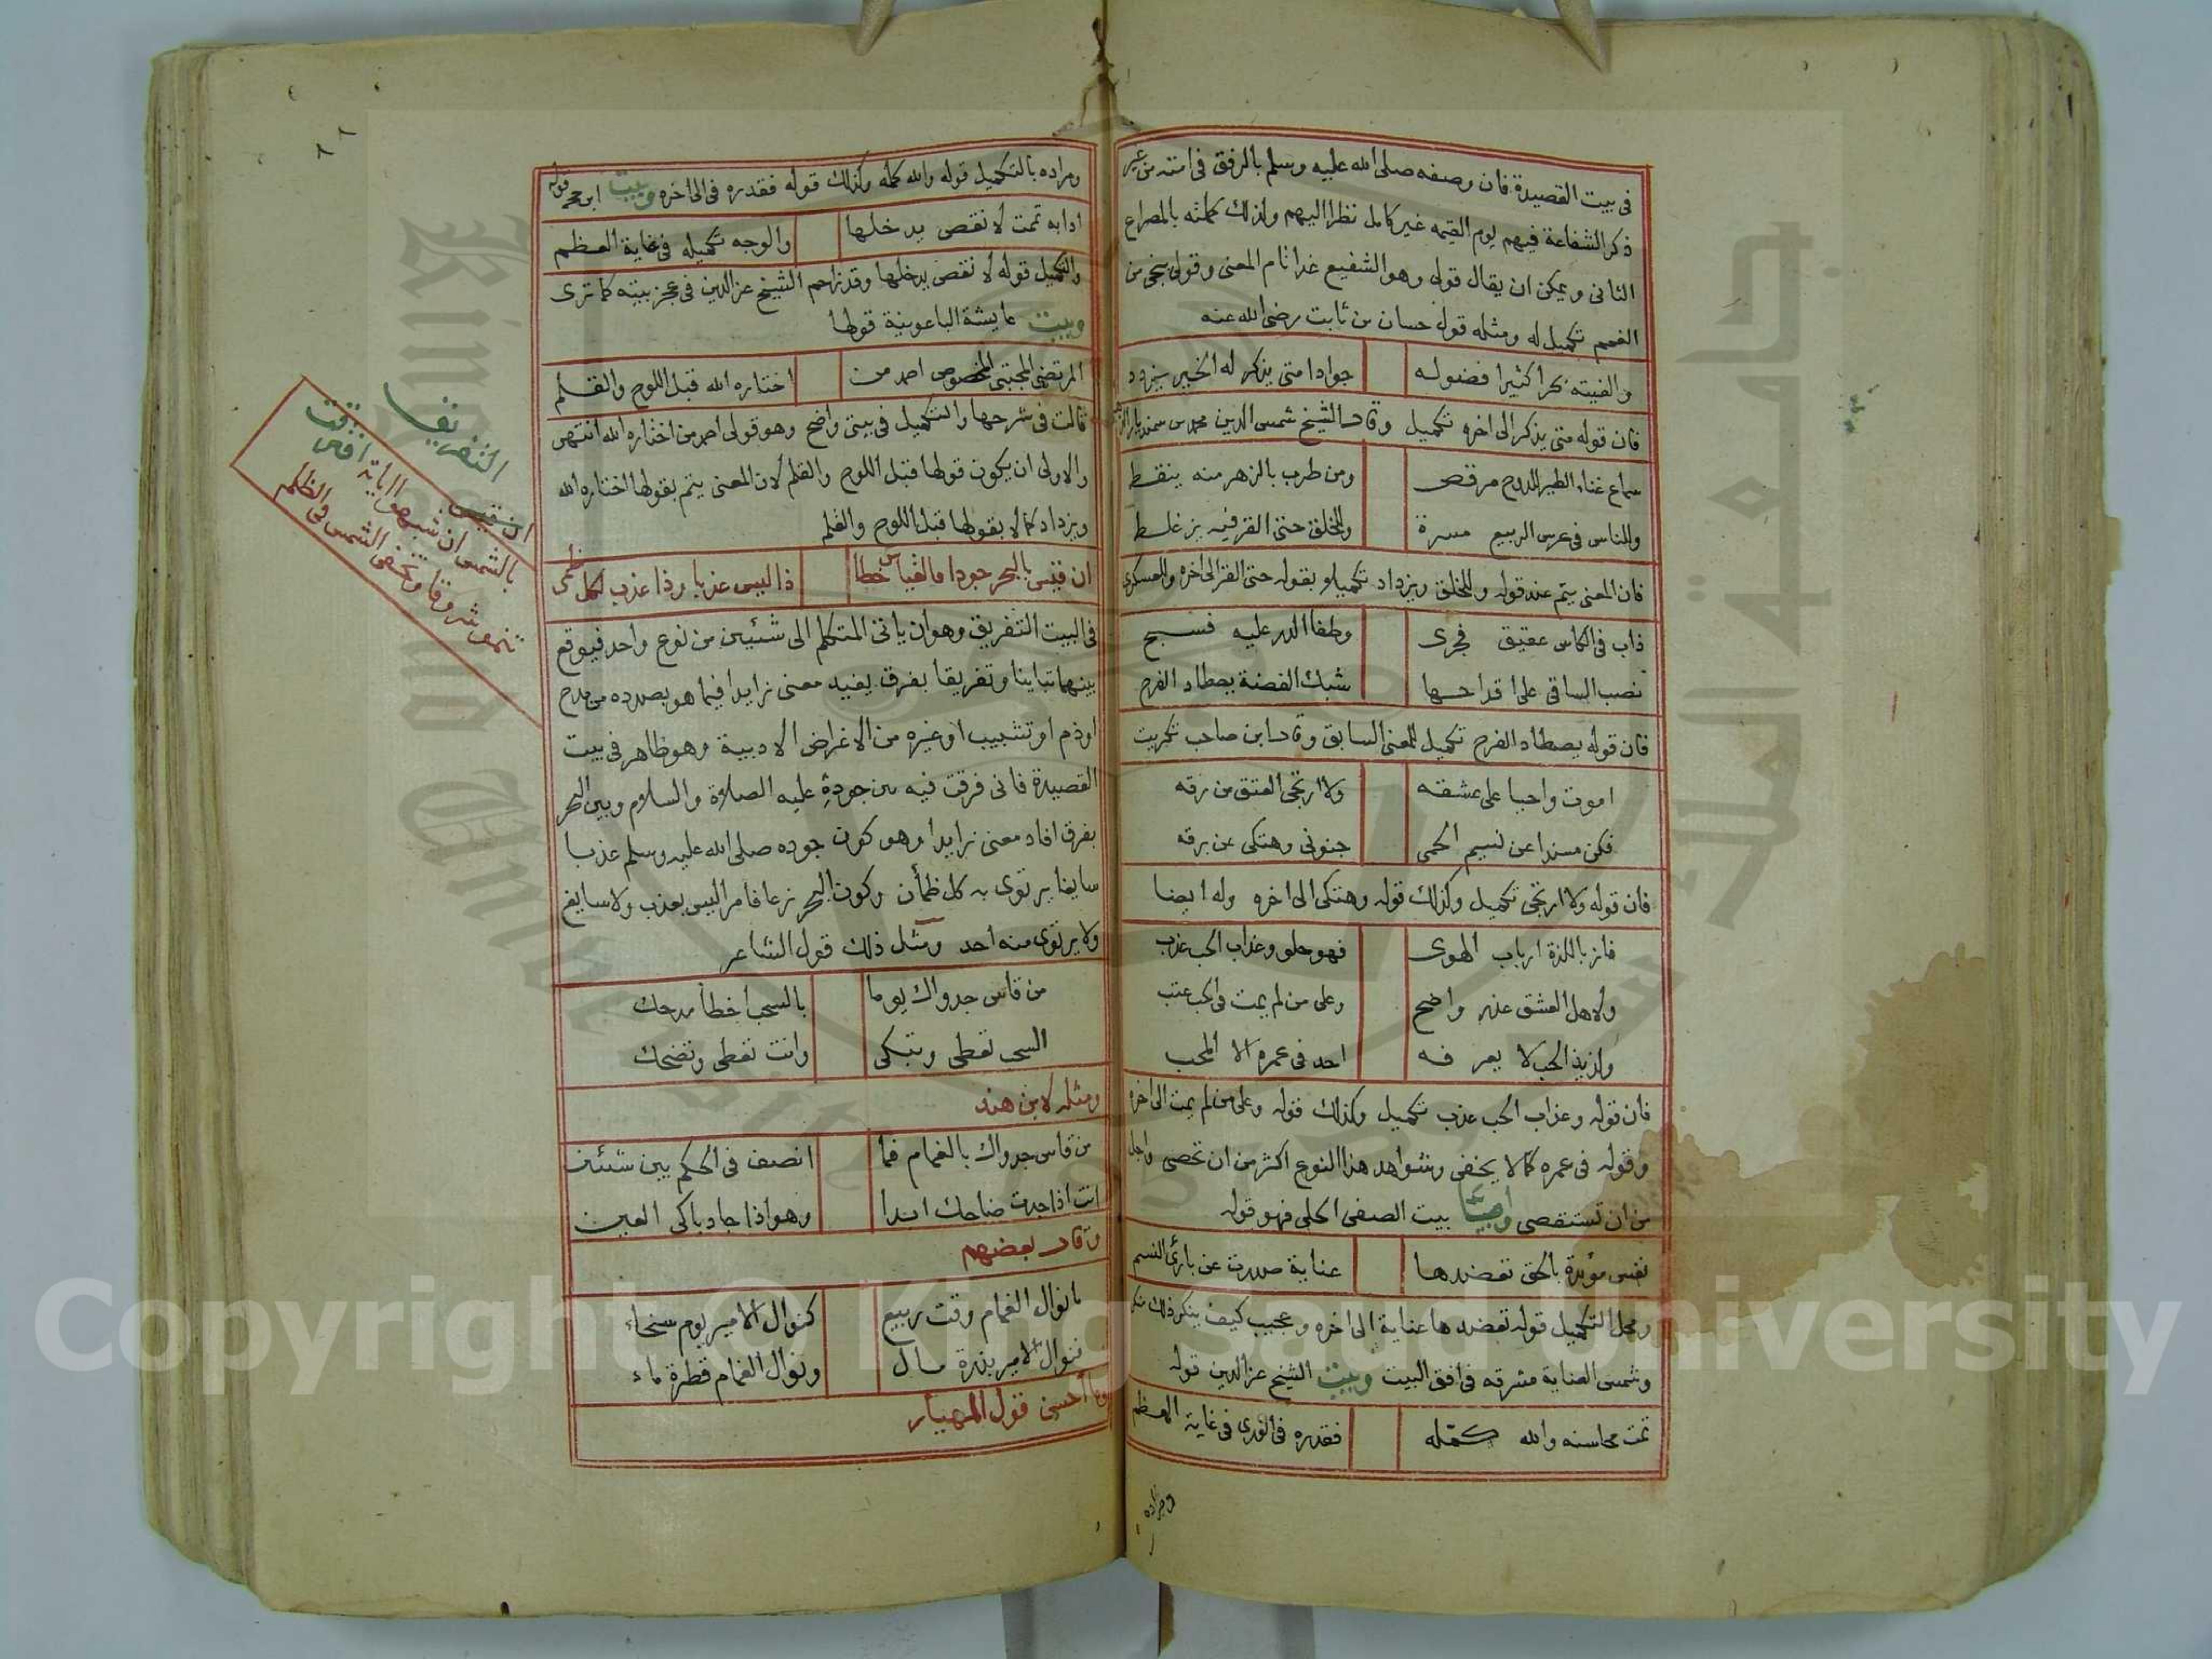 في بيت القصيدة فان وصفه صلى الله عليه وسلم بالرفق في امته من غير
ذكر الشفاعة فيهم يوم القيمه غير كامل نظرا اليهم ولذلك كملته بالمصراع
الثاني ويمكن ان يقال قولي وهو الشفيع غدا تام المعنى وقولي ينجي من
الغمم تكميل له ومثله قول حسان بن ثابت رضي الله عنه
والفيته بحرا كثيرا فضوله جوادا متى يذكر له الخير يزدد
فان قوله متى يذكر الى اخره تكميل وقال الشيخ شمس الدين محمد بن
سماع غناء الطير للدوح مرقص ومن طرب بالزهر منه ينقط
وللناس في عرس الربيع مسرة وللخلق حتى القز فيه بزغلط
فان المعنى يتم عند قوله وللخلق ويزداد تكميلا بقوله حتى القز الى اخره وللعسكري
ذاب في الكاس عقيق فجرى وطفا الدر عليه فسبح
نصب الساقي على اقداحها شبك الفضة يصطاد الفرح
فان قوله يصطاد الفرح تكميل للمعنى السابق وقال ابن صاحب تكريت
اموت واحيا على عشقه ولا ارتجي العتق من رقه
فكن مسندا عن نسيم الحمى جنوني وهتكي عن برقه
فان قوله ولا ارتجي تكميل وكذلك قوله وهتكي الى اخره وله ايضا
فاز باللذة ارباب الهوى فهو حلو وعذاب الحب عذب
ولاهل العشق عذر واضح وعلى من لم يمت في الحب عتب
ولذيذ الحب لا يعرفه احد في عمره الا المحب
فان قوله وعذاب الحب عذب تكميل وكذلك قوله وعلى من لم يمت الى اخره
وقوله في عمره كما لا يخفى وشواهد هذا النوع اكثر من ان تحصى واجل
من ان تستقصى وبيت الصفي الحلي فهو قوله
نفس مؤيدة بالحق تعضدها عناية صدرت عن بارئ النسم
ومحل التكميل قوله تعضدها عناية الى اخره وعجيب كيف ينكر ذلك منكر
وشمس العناية مشرقه في افق البيت وبيت الشيخ عز الدين قوله
تمت محاسنه والله كمله فقدره في الورى في غاية العظم
ومراده
ومراده بالتكميل قوله والله كمله وكذلك قوله فقدره في الى اخره وبيت ابن حجه قوله
ادابه تمت لا نقص يدخلها والوجه تكميله في غاية العظم
والتكميل قوله لا نقص يدخلها وقد زاحم الشيخ عز الدين في عجز بيته كما ترى
وبيت عايشة الباعونية قولها
المرتضى المجتبى المخصوص احمد من اختاره الله قبل اللوح والقلم
قالت في شرحها والتكميل في بيتي واضح وهو قولي احمد من اختاره الله انتهى
والاولى ان يكون قولها قبل اللوح والقلم لان المعنى يتم بقولها اختاره الله
ويزداد كمالا بقولها قبل اللوح والقلم
ان قيس بالبحر جودا فالقياس خطا ذا ليس عذبا وذا عذب لكل ظمى
في البيت التفريق وهو ان ياتي المتكلم الى شيئين من نوع واحد فيوقع
بينهما تباينا وتفريقا بفرق يفيد معنى زايدا فيما هو بصدده من مدح
او ذم او تشبيب او غيره من الاغراض الادبية وهو ظاهر في بيت
القصيدة فاني فرقت فيه بين جوده عليه الصلاة والسلام وبين البحر
بفرق افاد معنى زايدا وهو كون جوده صلى الله عليه وسلم عذبا
سايغا يرتوى به كل ظمأن وكون البحر زعافا مرا ليس بعذب ولا سايغ
ولا يرتوى منه احد ومثل ذلك قول الشاعر
من قاس جدواك يوما بالسحب أخطأ مدحك
السحب تعطي وتبكى وانت تعطي وتضحك
ومثله لابن هند
من قاس جدواك بالغمام فما انصف في الحكم بين شيئين
انت اذا جدت ضاحك ابدا وهو اذا جاد باكي العين
وقال بعضهم
ما نوال الغمام وقت ربيع كنوال الامير يوم سخاء
فنوال الامير بدرة مال ونوال الغمام قطرة ماء
وما أحسن قول المهيار
التفريق
ان قيس
بالشمس ان شبهوا افترقت
تنمو شروقا وتخفى الشمس في الظلم
Copyright © King Saud University
King Saud University
جامعة الملك سعود